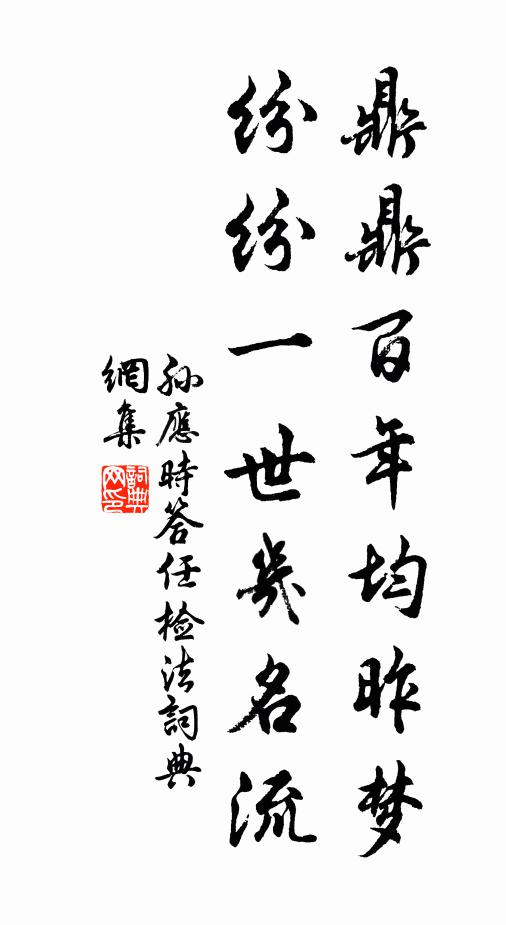 鼎鼎百年均昨梦
纷纷一世几名流
孙應時答任检法詞典
網集
詞典網印